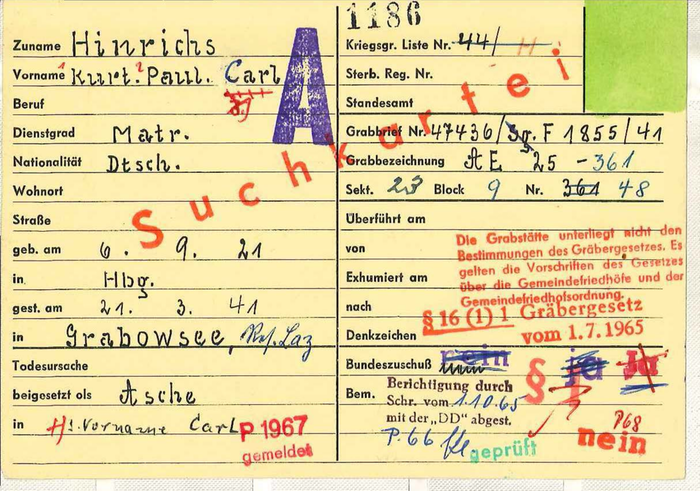 1186
Zuname Hinrichs
Vorname 1 Kurt. 2 Paul. Carl
Beruf
Dienstgrad Matr.
Nationalität Dtsch.
Wohnort
Straße
geb. am 6. 9. 21
in Hbg.
gest. am 21. 3. 41
in Grabowsee, Res. Laz
Todesursache
beigesetzt als Asche
in H: Vorname Carl
P 1967
gemeldet
A
Suchkartei
Kriegsgr. Liste Nr. 44/ H
Sterb. Reg. Nr.
Standesamt
Grabbrief Nr. 47436/Jg. F 1855/41
Grabbezeichnung AE 25 - 361
Sekt. 23 Block 9 Nr. 361 48
Überführt am
von
Exhumiert am
nach
Denkzeichen
Die Grabstätte unterliegt nicht den
Bestimmungen des Gräbergesetzes. Es
gelten die Vorschriften des Gesetzes
über die Gemeindefriedhöfe und der
Gemeindefriedhofsordnung.
§ 16 (1) 1 Gräbergesetz
vom 1.7.1965
Bundeszuschuß nein ja Ja
nein
§
Bem. Berichtigung durch
Schr. vom 1.10.65
mit der „DD" abgest.
P. 66
geprüft
P68
nein